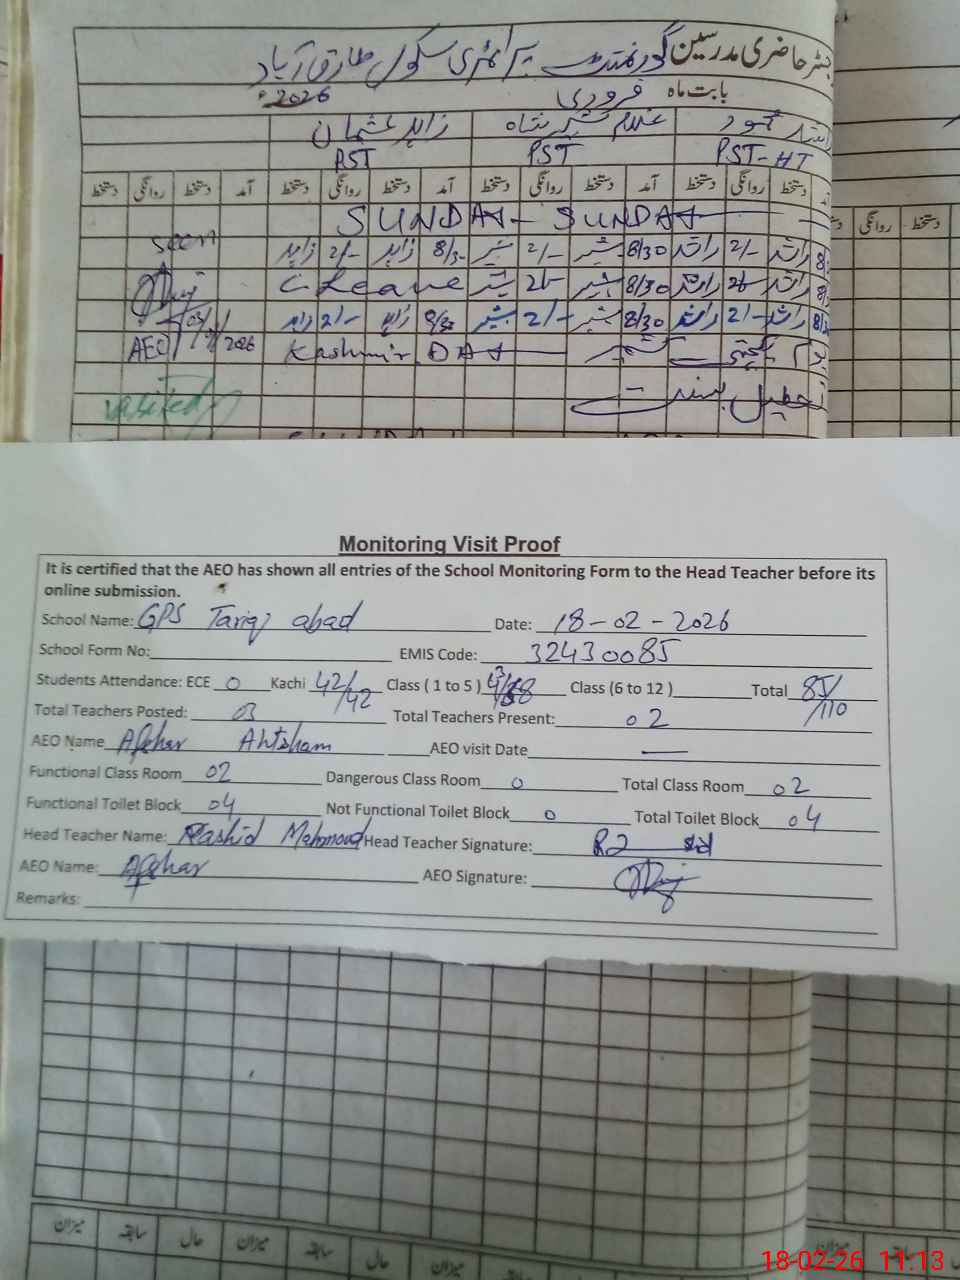 رجسٹر حاضری مدرسین گورنمنٹ پرائمری سکول طارق آباد
بابت ماہ فروری 2026
محمود غلام شبیر شاہ زاہد عثمان
PST-HT PST PST
دستخط روانگی دستخط آمد دستخط روانگی دستخط آمد دستخط روانگی دستخط آمد دستخط روانگی دستخط
SUNDAY - SUNDAY
seen
8/30 2/- 8/30 2/- زاہد 2/- زاہد
8/30 C Leave
8/30 2/- 2/- 8/30 2/- زاہد
AEO 2026 Kashmir DAY
visited
تعطیل بسنت
Monitoring Visit Proof
It is certified that the AEO has shown all entries of the School Monitoring Form to the Head Teacher before its
online submission.
School Name: GPS Tariq abad Date: 18-02-2026
School Form No: EMIS Code: 32430085
Students Attendance: ECE 0 Kachi 42/42 Class ( 1 to 5 ) 43/68 Class (6 to 12 ) Total 85/110
Total Teachers Posted: 03 Total Teachers Present: 02
AEO Name Afshar Ahtsham AEO visit Date —
Functional Class Room 02 Dangerous Class Room 0 Total Class Room 02
Functional Toilet Block 04 Not Functional Toilet Block 0 Total Toilet Block 04
Head Teacher Name: Rashid Mahmood Head Teacher Signature:
AEO Name: Afshar AEO Signature:
Remarks:
میزان سابقہ حال میزان سابقہ حال میزان سابقہ میزان سابقہ
18-02-26 11:13